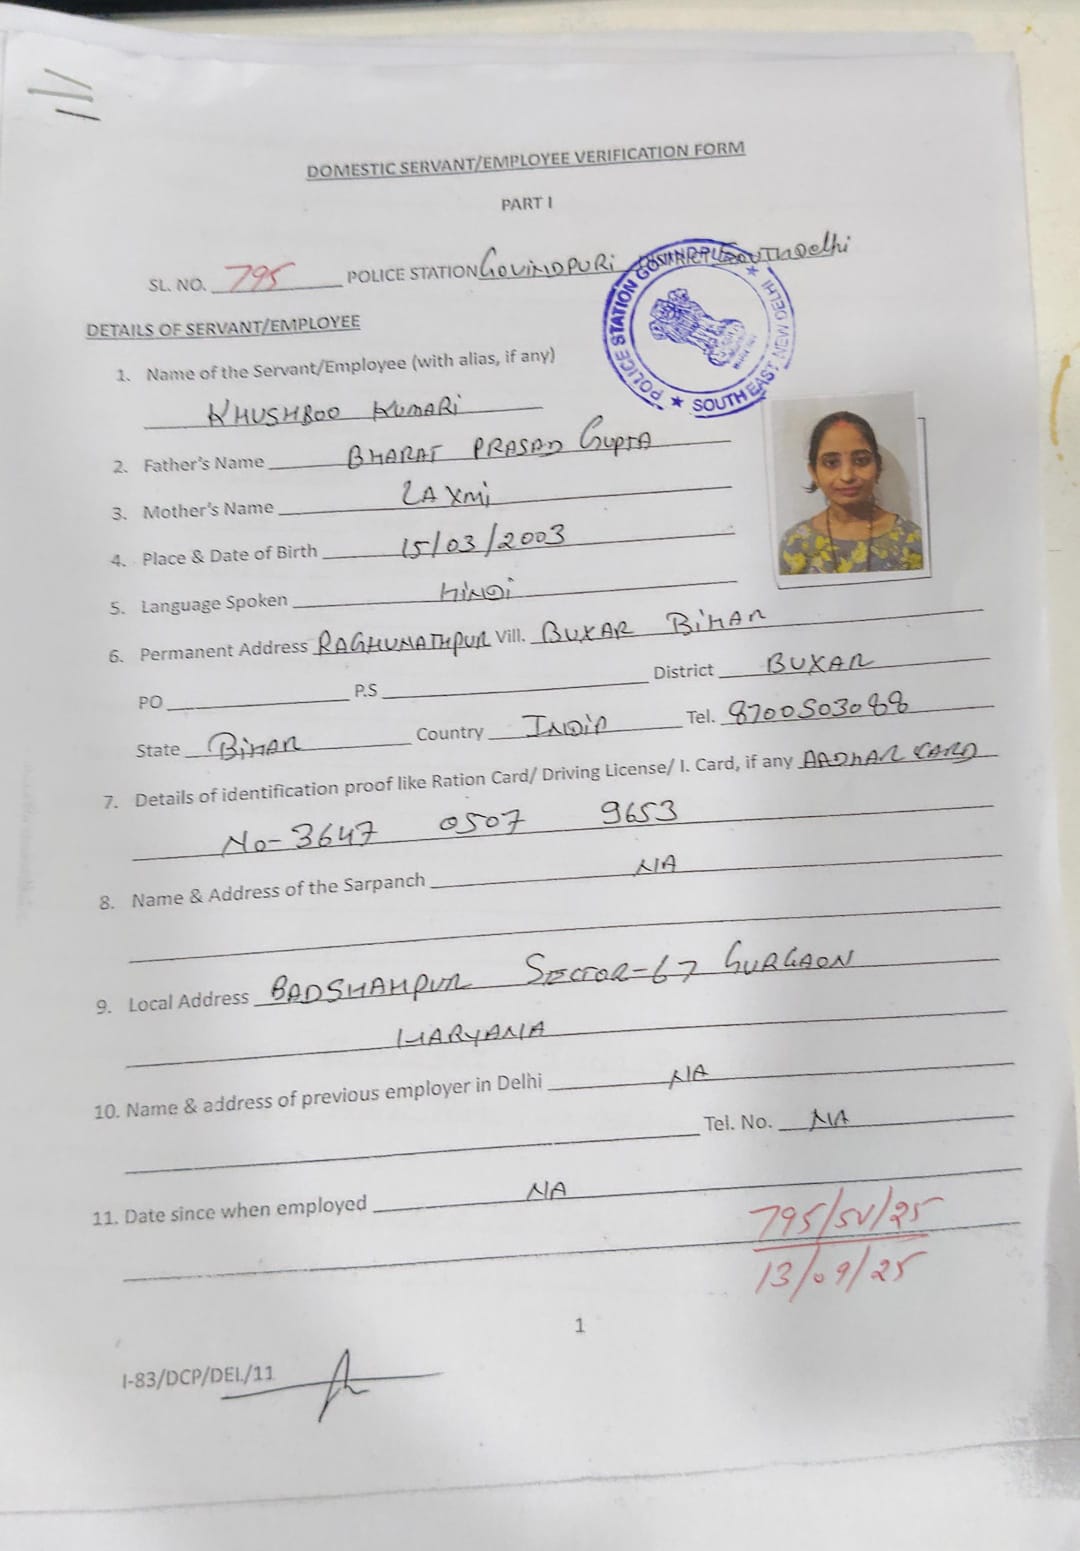 DOMESTIC SERVANT/EMPLOYEE VERIFICATION FORM
PART I
SL. NO. 795 POLICE STATION GOVINDPURI SOUTH Delhi
POLICE STATION GOVINDPURI ★ SOUTH EAST NEW DELHI ★
DETAILS OF SERVANT/EMPLOYEE
1. Name of the Servant/Employee (with alias, if any)
KHUSHBOO KUMARI
2. Father's Name BHARAT PRASAD GUPTA
3. Mother's Name LAXMI
4. Place & Date of Birth 15/03/2003
5. Language Spoken HINDI
6. Permanent Address RAGHUNATHPUR Vill. BUXAR BIHAR
PO P.S District BUXAR
State BIHAR Country INDIA Tel. 8700503088
7. Details of identification proof like Ration Card/ Driving License/ I. Card, if any AADHAR CARD
No- 3647 0507 9653
8. Name & Address of the Sarpanch NA
9. Local Address BADSHAHPUR SECTOR-67 GURGAON
HARYANA
10. Name & address of previous employer in Delhi NA
Tel. No. NA
11. Date since when employed NA
795/SV/25
13/09/25
1
I-83/DCP/DEL/11